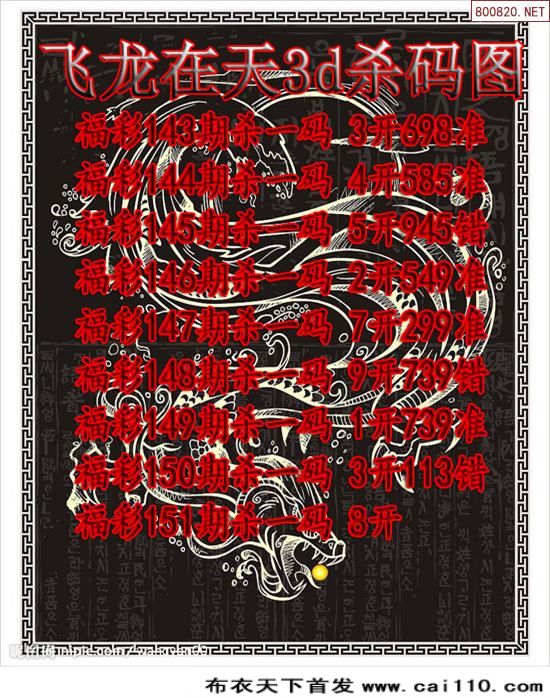 800820.NET
飞龙在天3d杀码图
福彩143期杀一码 3开698准
福彩144期杀一码 4开585准
福彩145期杀一码 5开945错
福彩146期杀一码 2开549准
福彩147期杀一码 7开299准
福彩148期杀一码 9开739错
福彩149期杀一码 1开739准
福彩150期杀一码 3开113错
福彩151期杀一码 8开
布衣天下首发 www.cai110.com